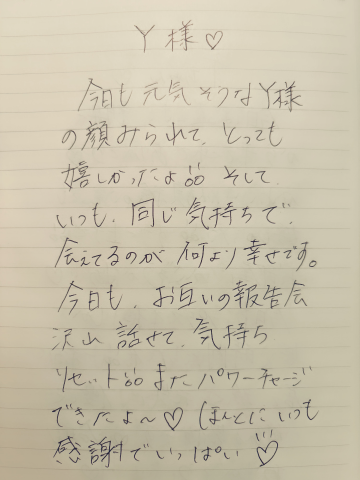 Y様♡
今日も元気そうなY様
の顔みられて、とっても
嬉しかったよ そして
いつも、同じ気持ちで、
会えてるのが何より幸せです。
今日も、お互いの報告会
沢山話せて、気持ち
リセット またパワーチャージ
できたよ〜♡ほんとにいつも
感謝でいっぱい♡